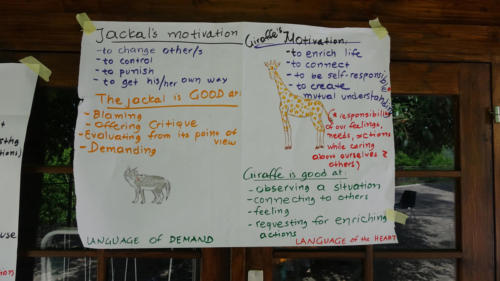 Jackal's motivation
-to change other/s
-to control
-to punish
-to get his/her own way
The jackal is GOOD at:
-Blaming
-Offering Critique
-Evaluating from its point of view
-Demanding
LANGUAGE OF DEMAND
Giraffe's Motivation:
-to enrich life
-to connect
-to be self-responsible
-to create mutual understanding
(*responsibility
of our feelings,
needs, actions
while caring
about ourselves &
others)
Giraffe is good at:
-observing a situation
-connecting to others
-feeling
-requesting for enriching
actions
LANGUAGE of the HEART